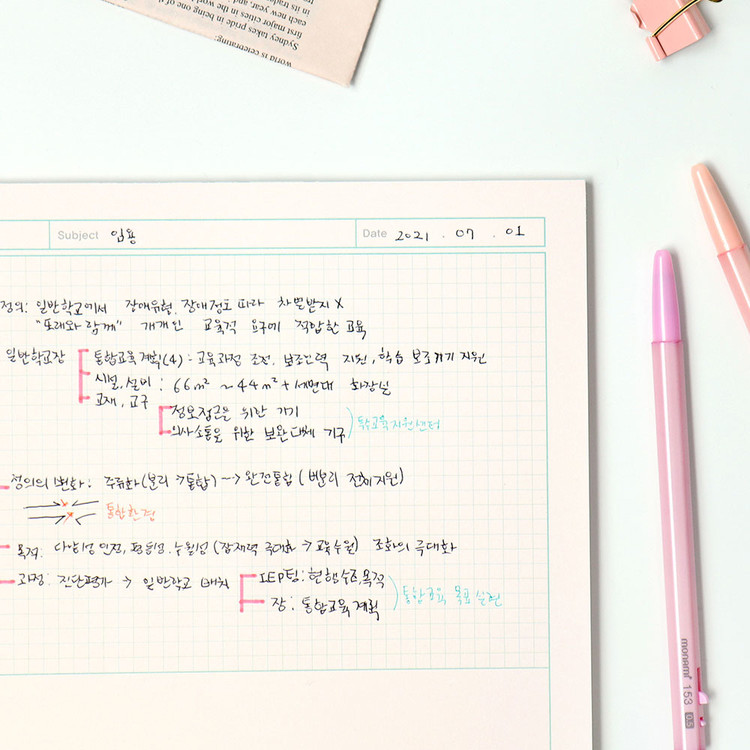 world is celebrating:
Sydney takes pride in being one of the
first major cities in the world
each new year and
in its tra
Subject 임용 Date 2021 . 07 . 01
정의: 일반학교에서 장애유형, 장애정도 따라 차별받지 X
"또래와 함께" 개개인 교육적 요구에 적합한 교육
일반학교장 통합교육계획(4): 교육과정 조정, 보조인력 지원, 학습 보조기기 지원
시설,설비 : 66m² ~44m² + 세면대 화장실
교재, 교구
정보접근을 위한 기기
의사소통을 위한 보완대체 기구 특수교육지원센터
정의의 변화: 주류화(분리→통합) --> 완전통합 (비분리 전체지원)
통합환경
목적: 다양성 인정, 평등성, 수월성 (잠재력 극대화 → 교육수월) 조화의 극대화
과정: 진단평가 → 일반학교 배치 IEP팀: 현행수준,목적
장: 통합교육계획 통합교육 목표 실현
monami 153 0.5